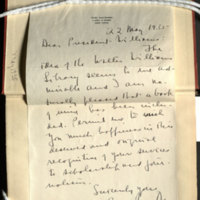 22 May 19
Dear President Williams:
The
idea of the Walter Williams
Library seems to me ad-
mirable and I am na-
turally pleased that a book
of mine has been inclu-
ded. Permit me to wish
you much happiness in this
deserved and original
recognition of your services
to scholarship and jour-
nalism.
Sincerely yours